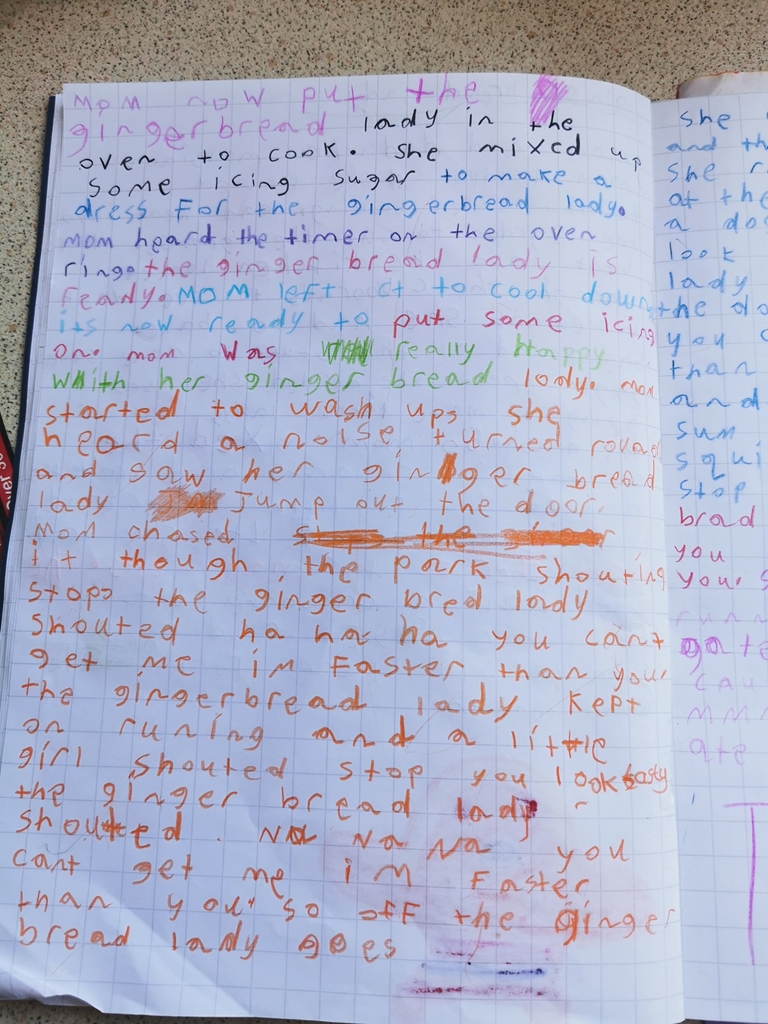 mom now put the
gingerbread lady in the
oven to cook. She mixed up
some icing sugar to make a
dress for the gingerbread lady.
mom heard the timer on the oven
ring. the ginger bread lady is
ready. Mom left it to cool down
its now ready to put some icing
on. mom was really Happy
whith her ginger bread lady. mom
started to wash up, she
heard a noise turned round
and saw her ginger bread
lady Jump out the door.
Mom chased
it though the park shouting
stop, the ginger bred lady
shouted ha ha ha you cant
get me im Faster than you.
the gingerbread lady kept
on runing and a little
girl shouted stop you look tasty
the ginger bread lady
shouted Na Na Na you
cant get me im Faster
than you. so off the ginger
bread lady goes
she
and
she
at the
a
look
lady
the
you
than
and
sum
squi
stop
brad
you
you. s
runn
gate
cau
mmm
ate